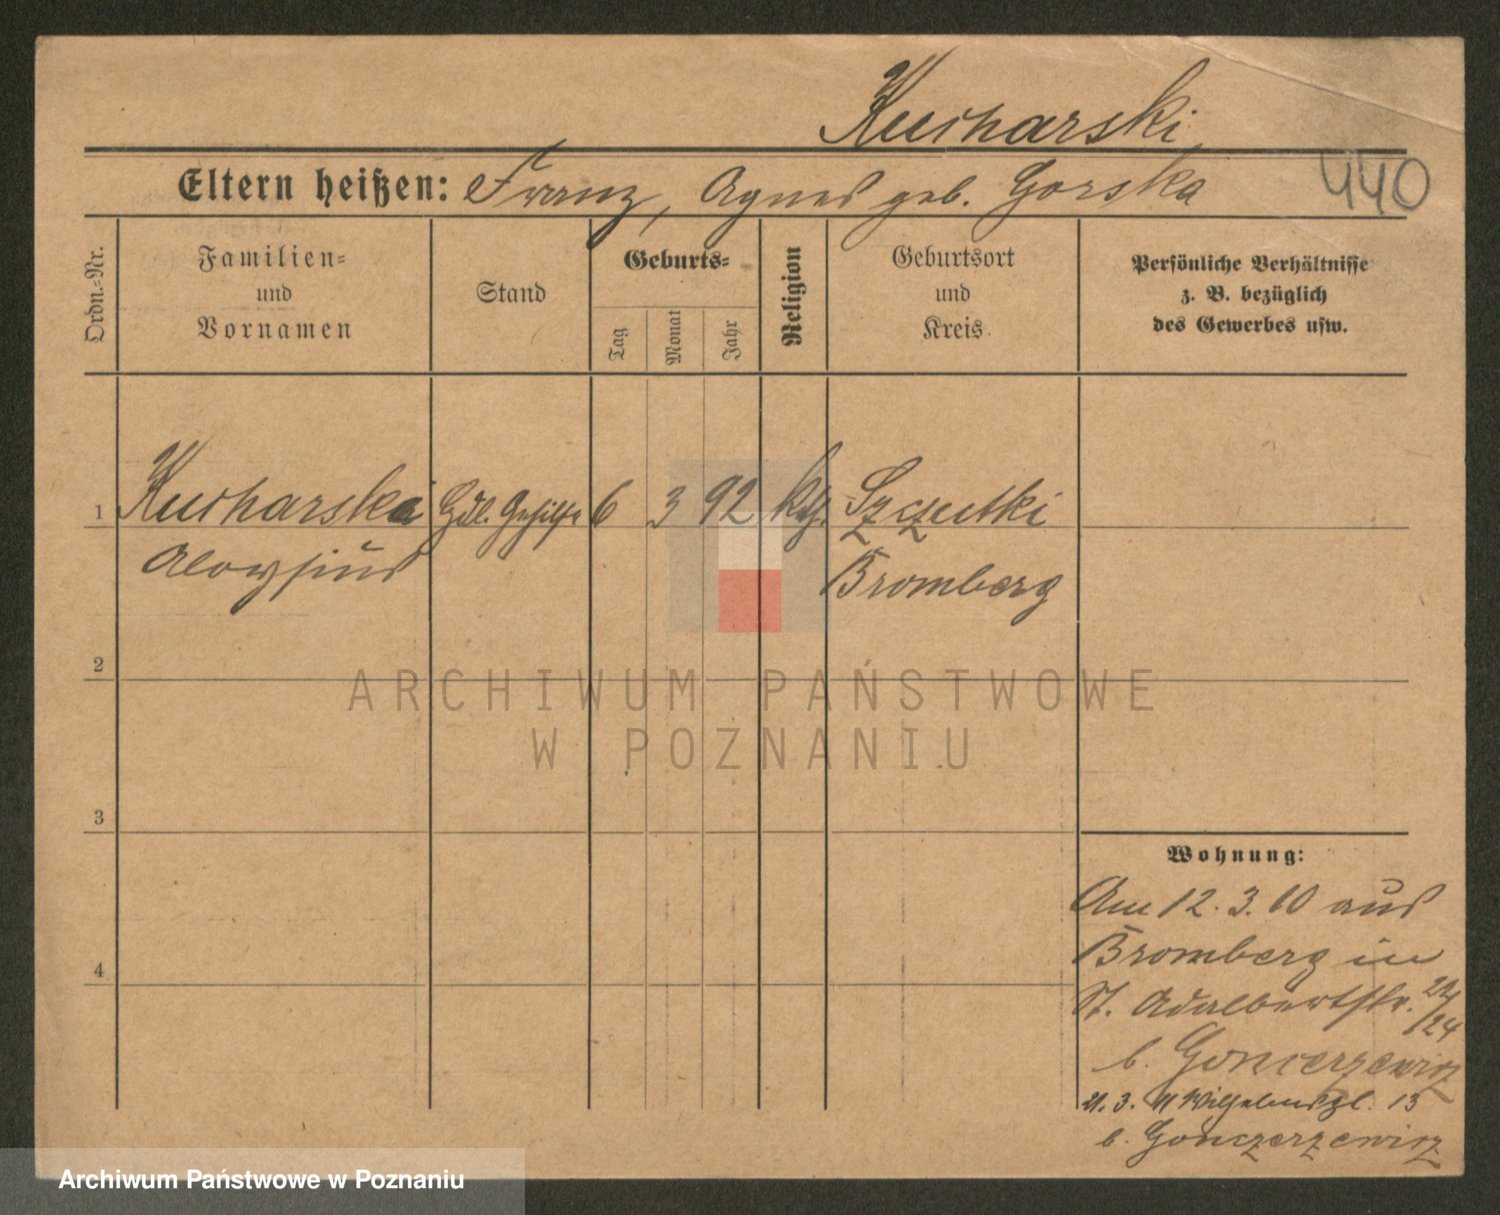 Kucharski
440
Eltern heißen: Franz, Agnes geb. Gorska
Ordn.-Nr.
Familien-
und
Vornamen
Stand
Geburts-
Tag
Monat
Jahr
Religion
Geburtsort
und
Kreis
Persönliche Verhältnisse
z. B. bezüglich
des Gewerbes usw.
1
Kucharski
Aloysius
Hdl. Gehilfe
6
3
92
kth.
Szczutki
Bromberg
2
3
4
Wohnung:
Am 12. 3. 10 aus
Bromberg in
St. Adalbertstr. 23/24
b. Gonczerzewicz
21. 3. 11 Wilhelmspl. 13
b. Gonczerzewicz
ARCHIWUM PAŃSTWOWE
W POZNANIU
Archiwum Państwowe w Poznaniu